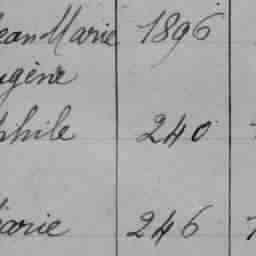 Jean Marie 1896
ugène
phile 240
Marie 246